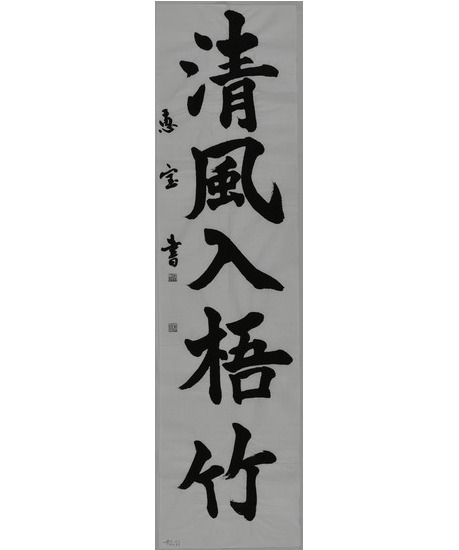 清風入梧竹
惠宝書